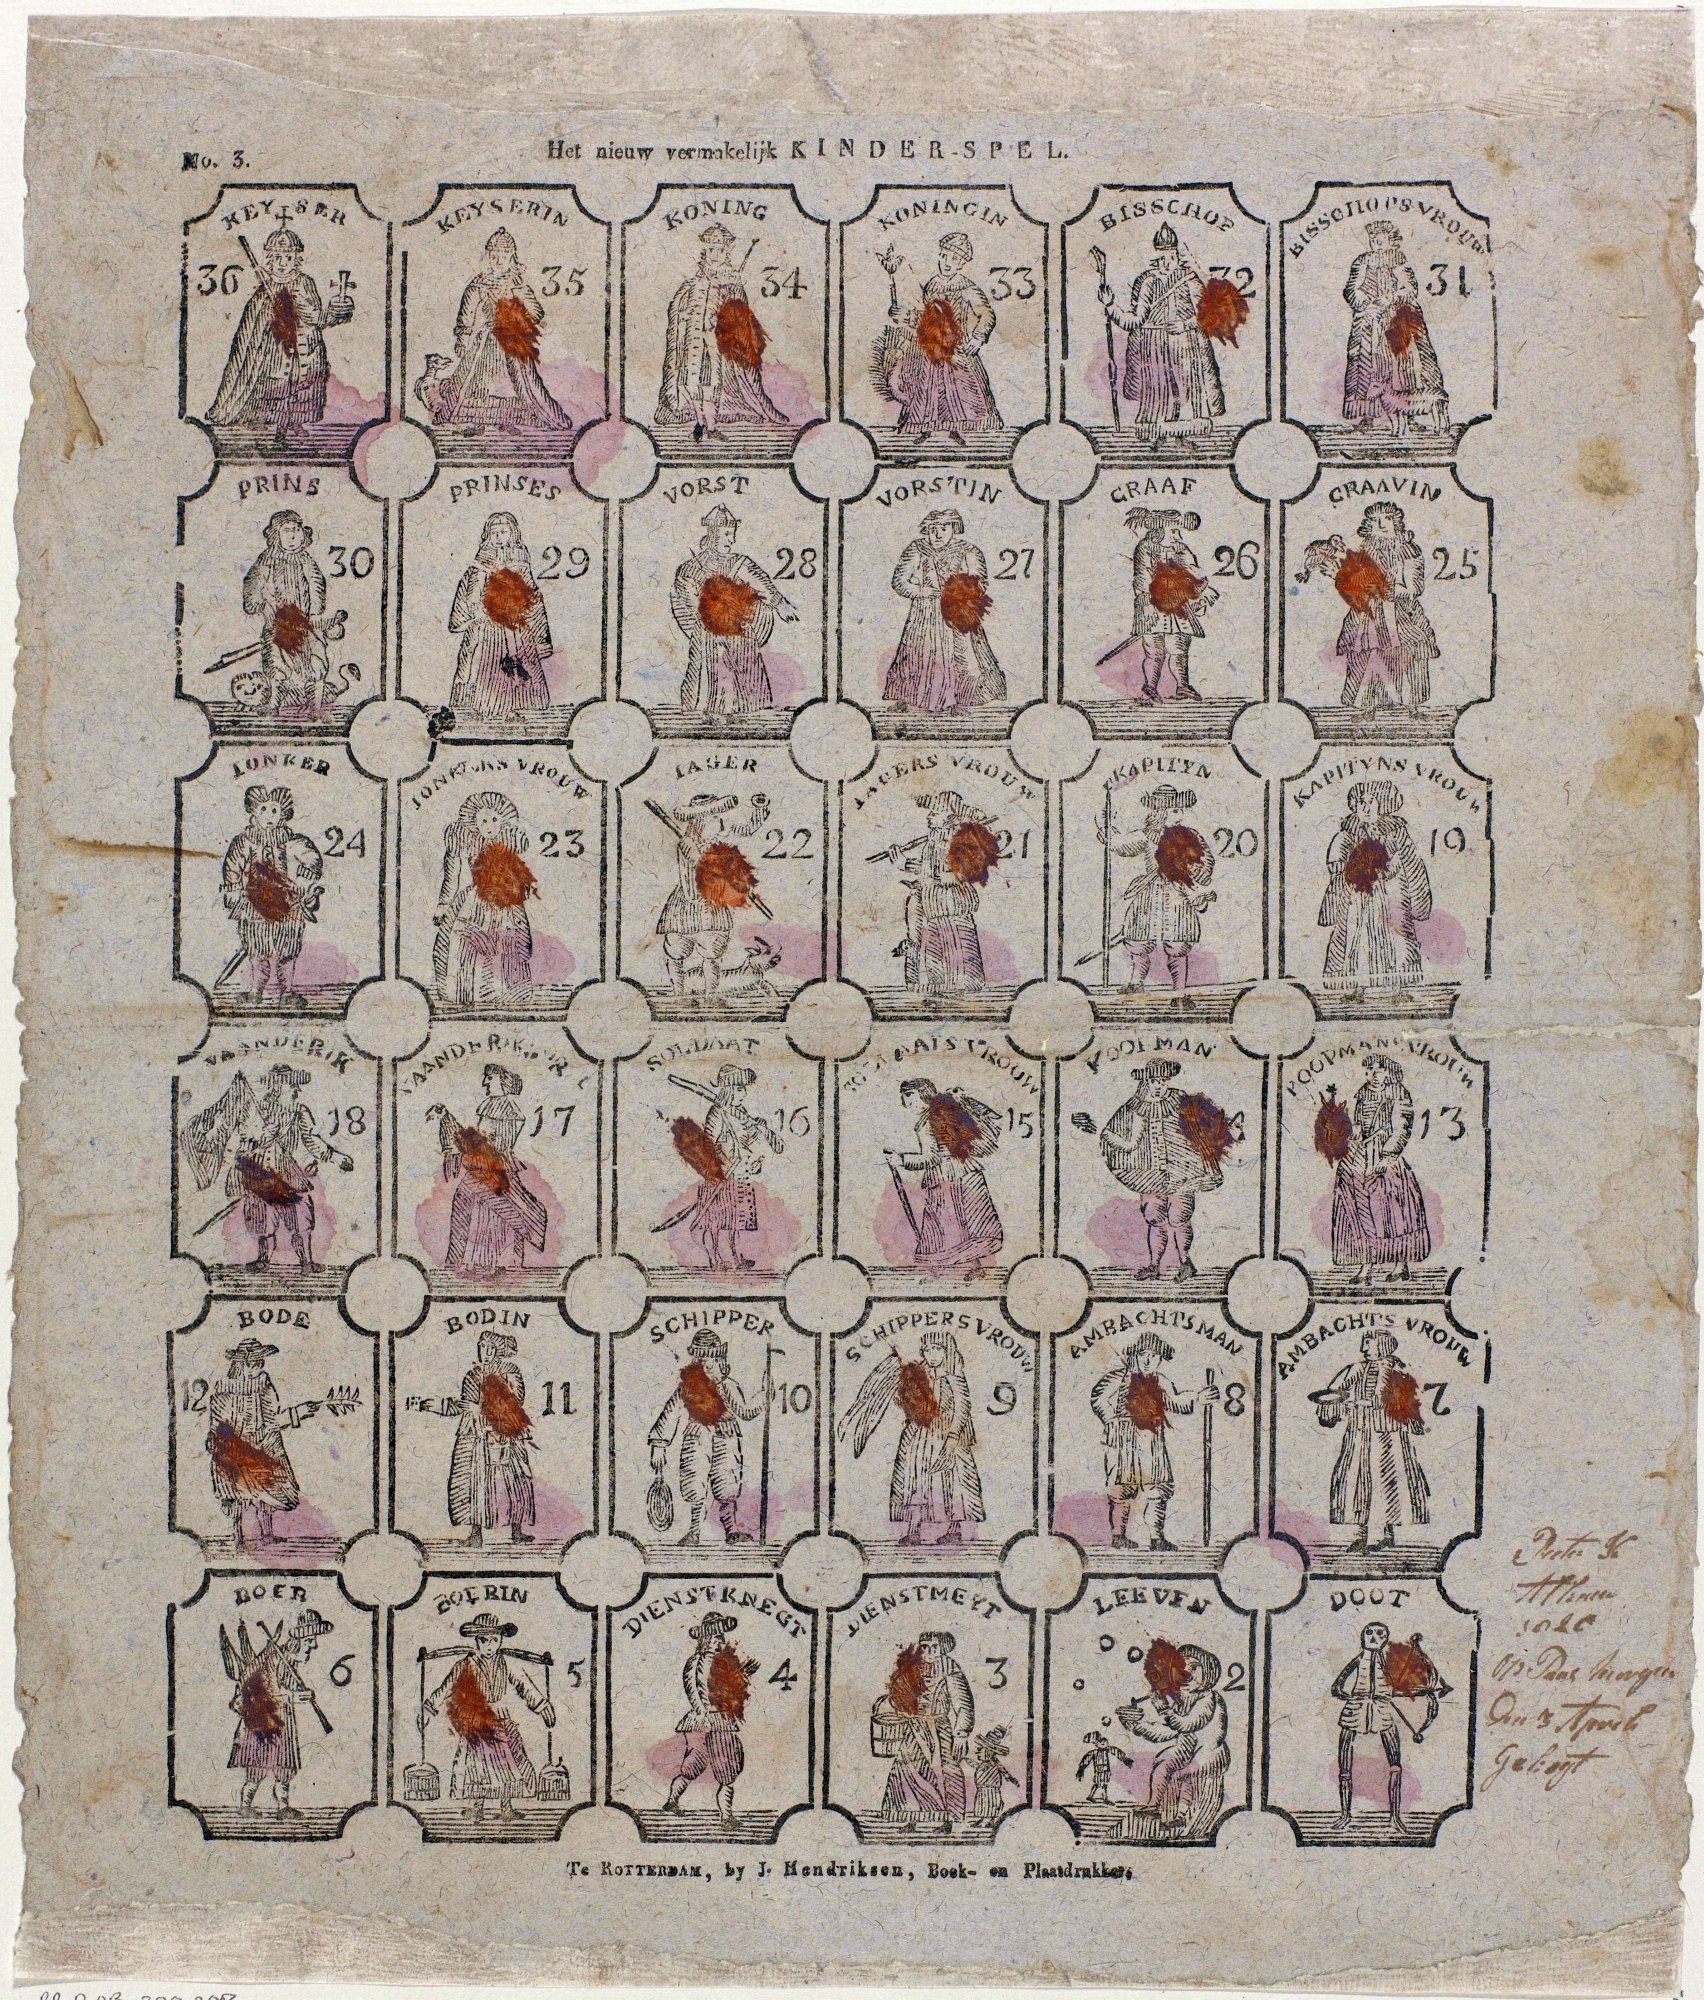 No. 3.
Het nieuw vermakelijk KINDER-SPEL.
KEYSER
36
KEYSERIN
35
KONING
34
KONINGIN
33
BISSCHOP
32
BISSCHOPSVROUW
31
PRINS
30
PRINSES
29
VORST
28
VORSTIN
27
GRAAF
26
GRAAVIN
25
IONKER
24
IONKERS VROUW
23
IAGER
22
IAGERS VROUW
21
KAPITYN
20
KAPITYNS VROUW
19
VAANDERIK
18
17
SOLDAAT
16
SOLDAATSVROUW
15
KOOPMAN
KOOPMANSVROUW
13
BODE
12
BODIN
11
SCHIPPER
10
SCHIPPERSVROUW
9
AMBACHTSMAN
8
AMBACHTS VROUW
7
BOER
6
BOERIN
5
DIENSTKNEGT
4
DIENSTMEYT
3
LEEVEN
2
DOOT
Te ROTTERDAM, by J. Hendriksen, Boek- en Plaatdrukker.
Pieter
op Paas
Den 3 April